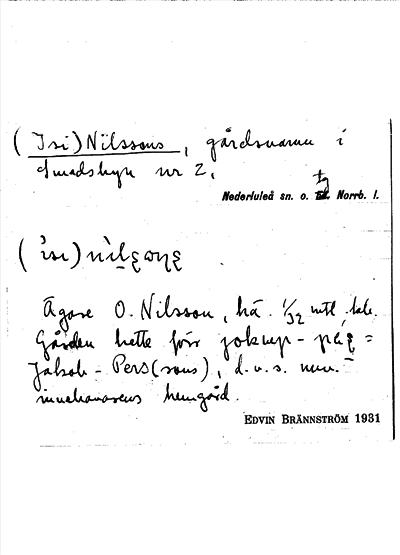 (Isi) Nilssons, gårdsnamn i
Smedsbyn nr 2,
Nederluleå sn. o. tg Norrb. l.
Ägare O. Nilsson, hä. 1/32 mtl
Gården hette förr jokup-
Jakob-Pers(sons), d.v.s. nuv.
innehavarens hemgård.
EDVIN BRÄNNSTRÖM 1931